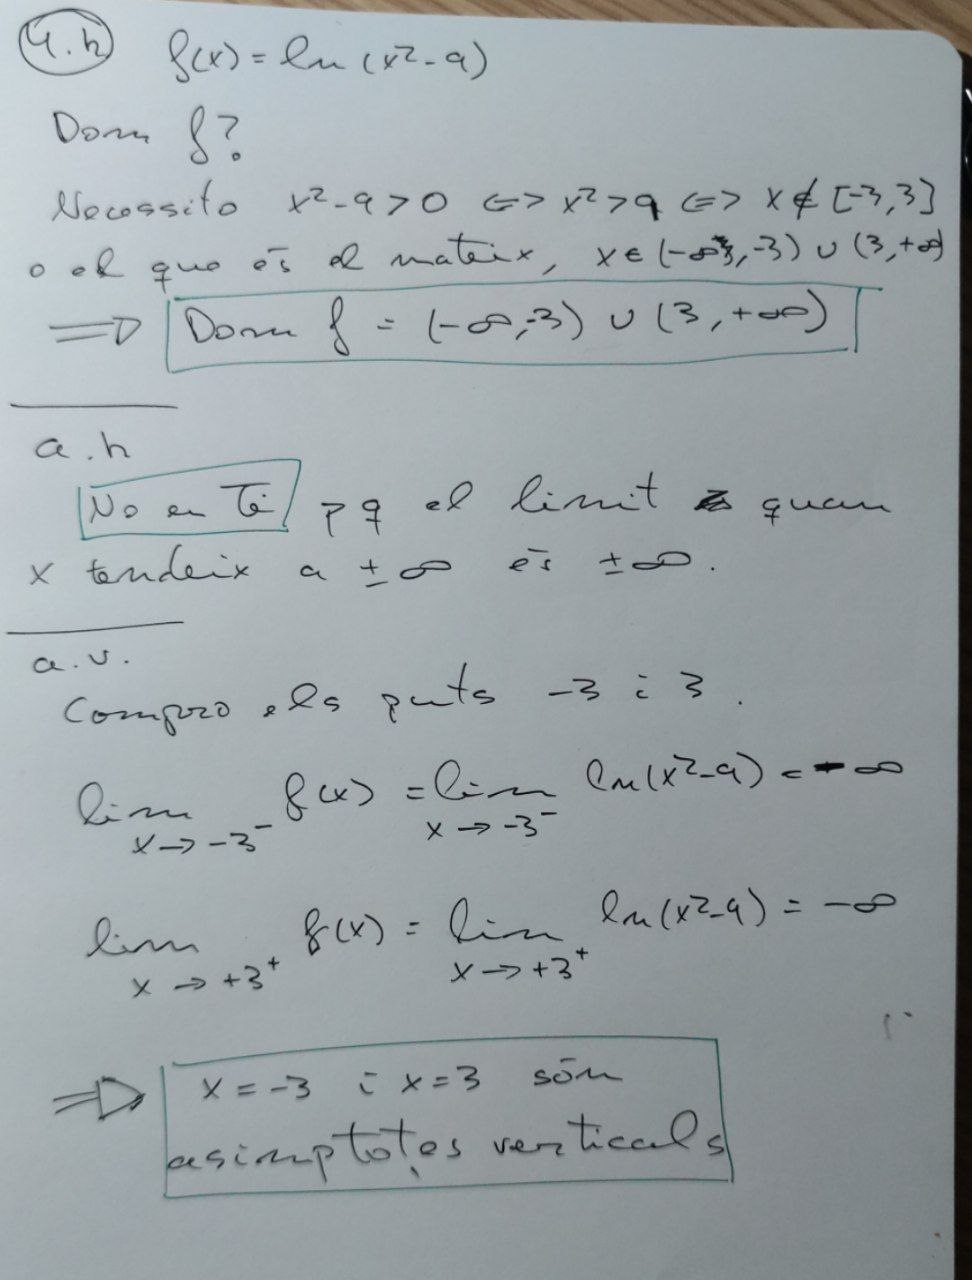 4.h f(x) = ln (x²-9)
Dom f?
Necessito x²-9>0 <=> x²>9 <=> x∉[-3,3]
o el que és el mateix, x∈(-∞,-3) ∪ (3,+∞)
=> Dom f = (-∞,-3) ∪ (3,+∞)
a.h
No en té pq el limit quan
x tendeix a ±∞ és ±∞.
a.v.
Compro els punts -3 i 3.
lim x→-3⁻ f(x) = lim x→-3⁻ ln(x²-9) = -∞
lim x→+3⁺ f(x) = lim x→+3⁺ ln(x²-9) = -∞
=> x=-3 i x=3 són
asimptotes verticals